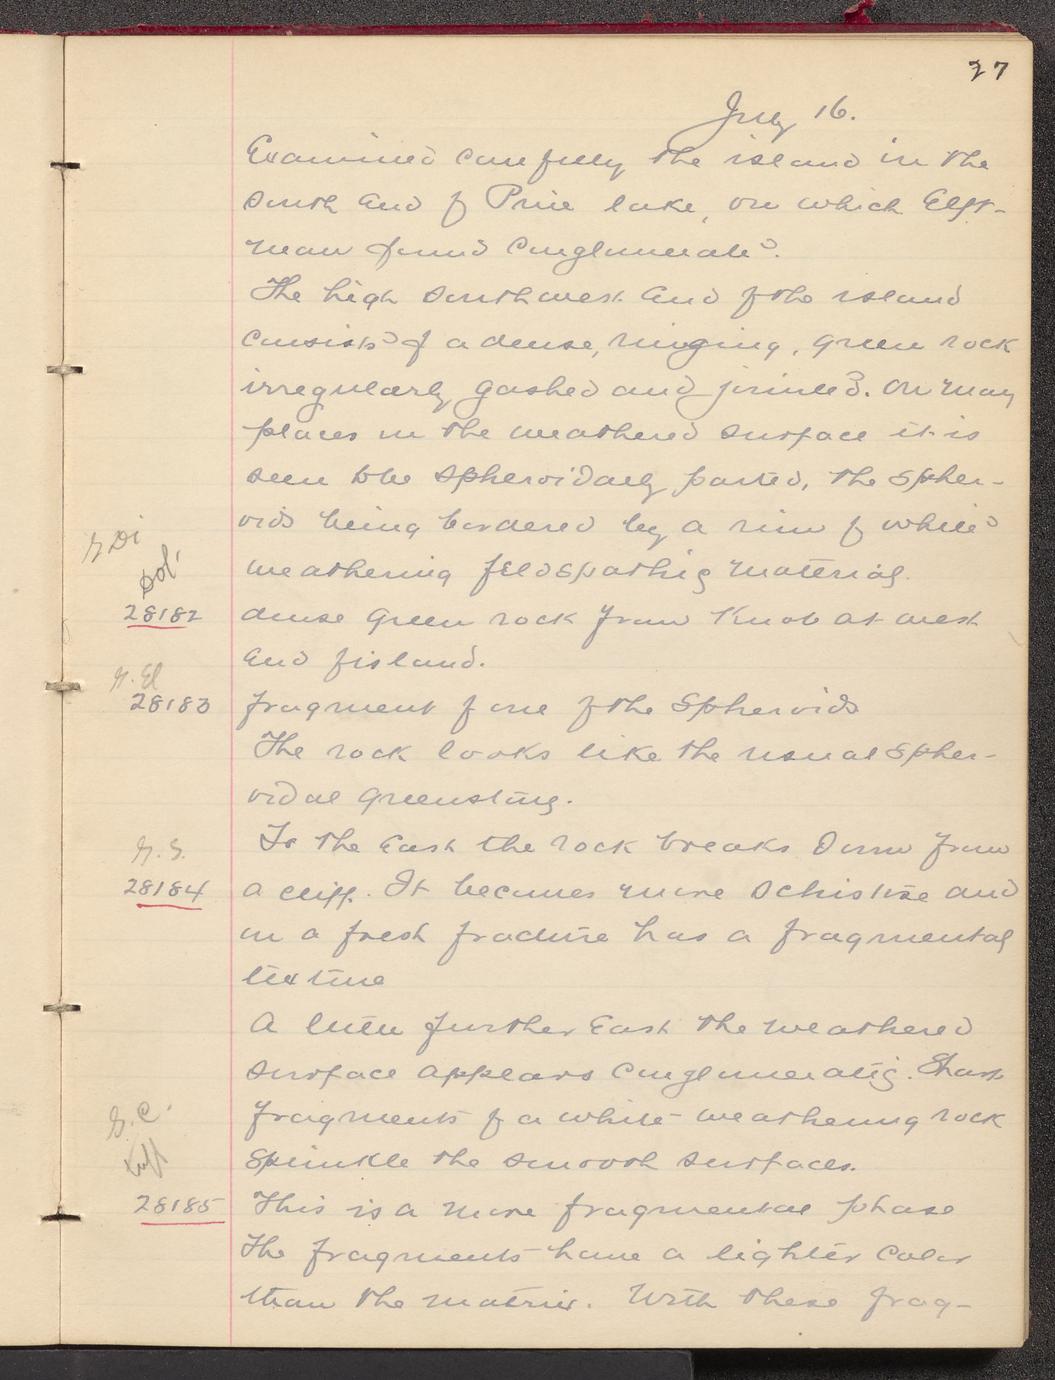 27
July 16.
Examined carefully the island in the
south end of Pine lake, on which Elft-
man found conglomerate.
The high southwest end of the island
consists of a dense, ringing, green rock
irregularly gashed and jointed. On many
places in the weathered surface it is
seen to be spheroidally parted, the spher-
oids being bordered by a rim of white
weathering feldspathic material.
G Di
dol.
28182 dense green rock from Knob at west
end of island.
G. El
28183 fragment of one of the spheroids
The rock looks like the usual spher-
oidal greenstone.
To the East the rock breaks down from
G. S.
28184 a cliff. It becomes more schistose and
on a fresh fracture has a fragmental
texture
A little further East the weathered
surface appears conglomeratic. Sharp
fragments of a white weathering rock
G. C.
Sprinkle the smooth surfaces.
tuff
28185 This is a more fragmental phase
The fragments have a lighter color
than the matrix. With these frag-